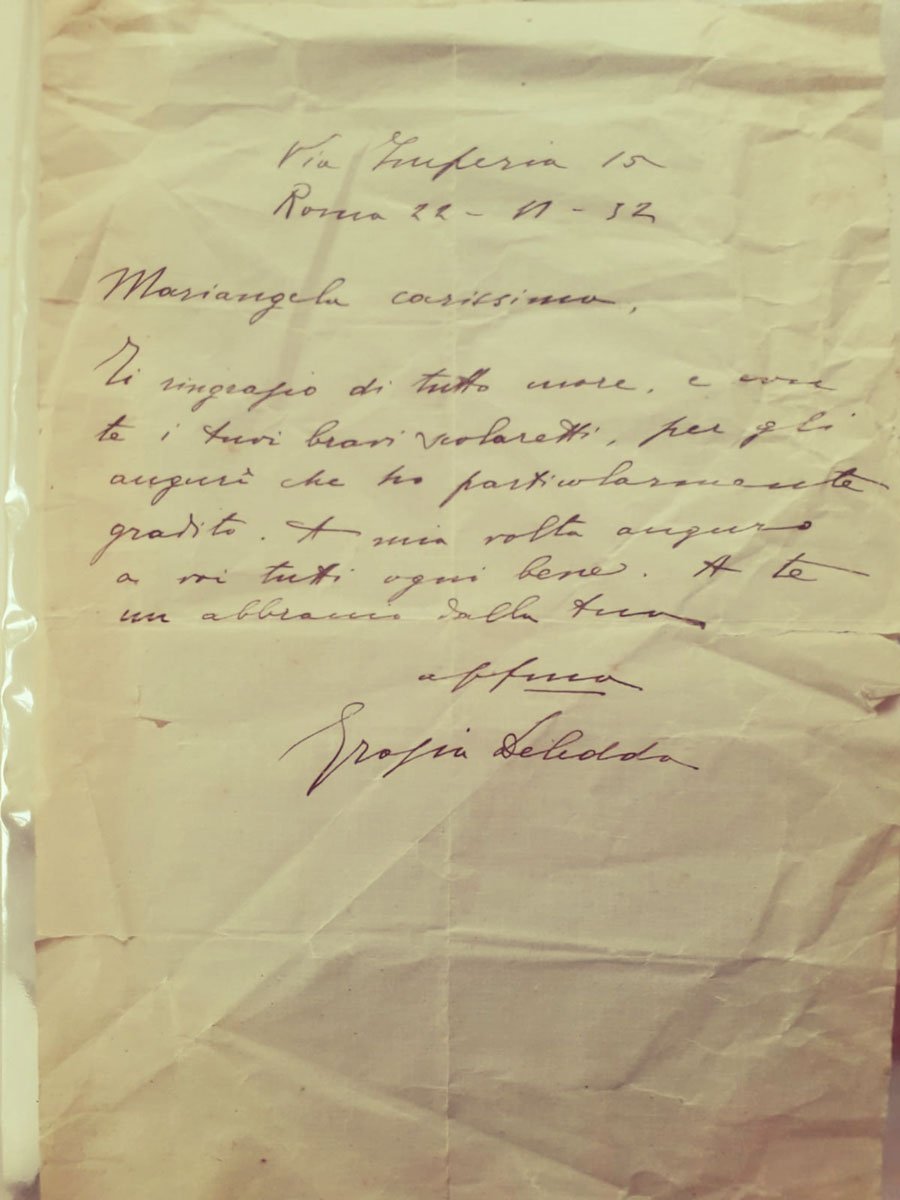 Via Imperia 15
Roma 22 - 11 - 32
Mariangela carissima,
Ti ringrazio di tutto cuore, e con
te i tuoi bravi scolaretti, per gli
augurî che ho particolarmente
gradito. A mia volta auguro
a voi tutti ogni bene. A te
un abbraccio dalla tua
affma
Grazia Deledda